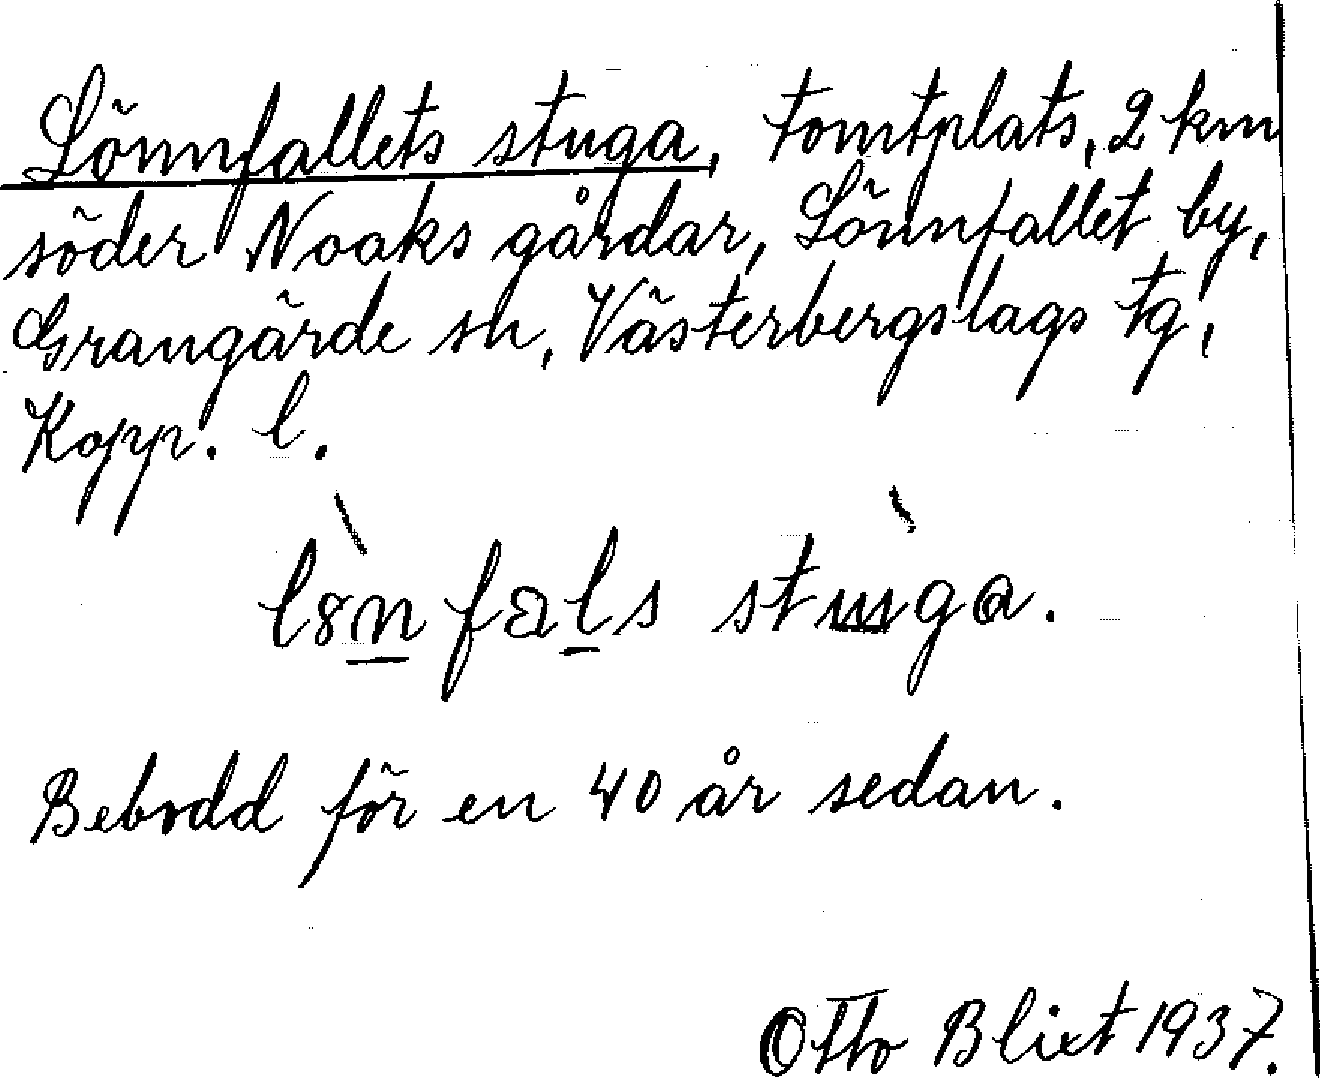 Lönnfallets stuga, tomtplats, 2 km
söder Noaks gårdar, Lönnfallet by,
Grangärde sn, Västerbergslags tg,
Kopp. l.
l8̀n̲fal̲s stɯ̀ga.
Bebodd för en 40 år sedan.
Otto Blixt 1937.